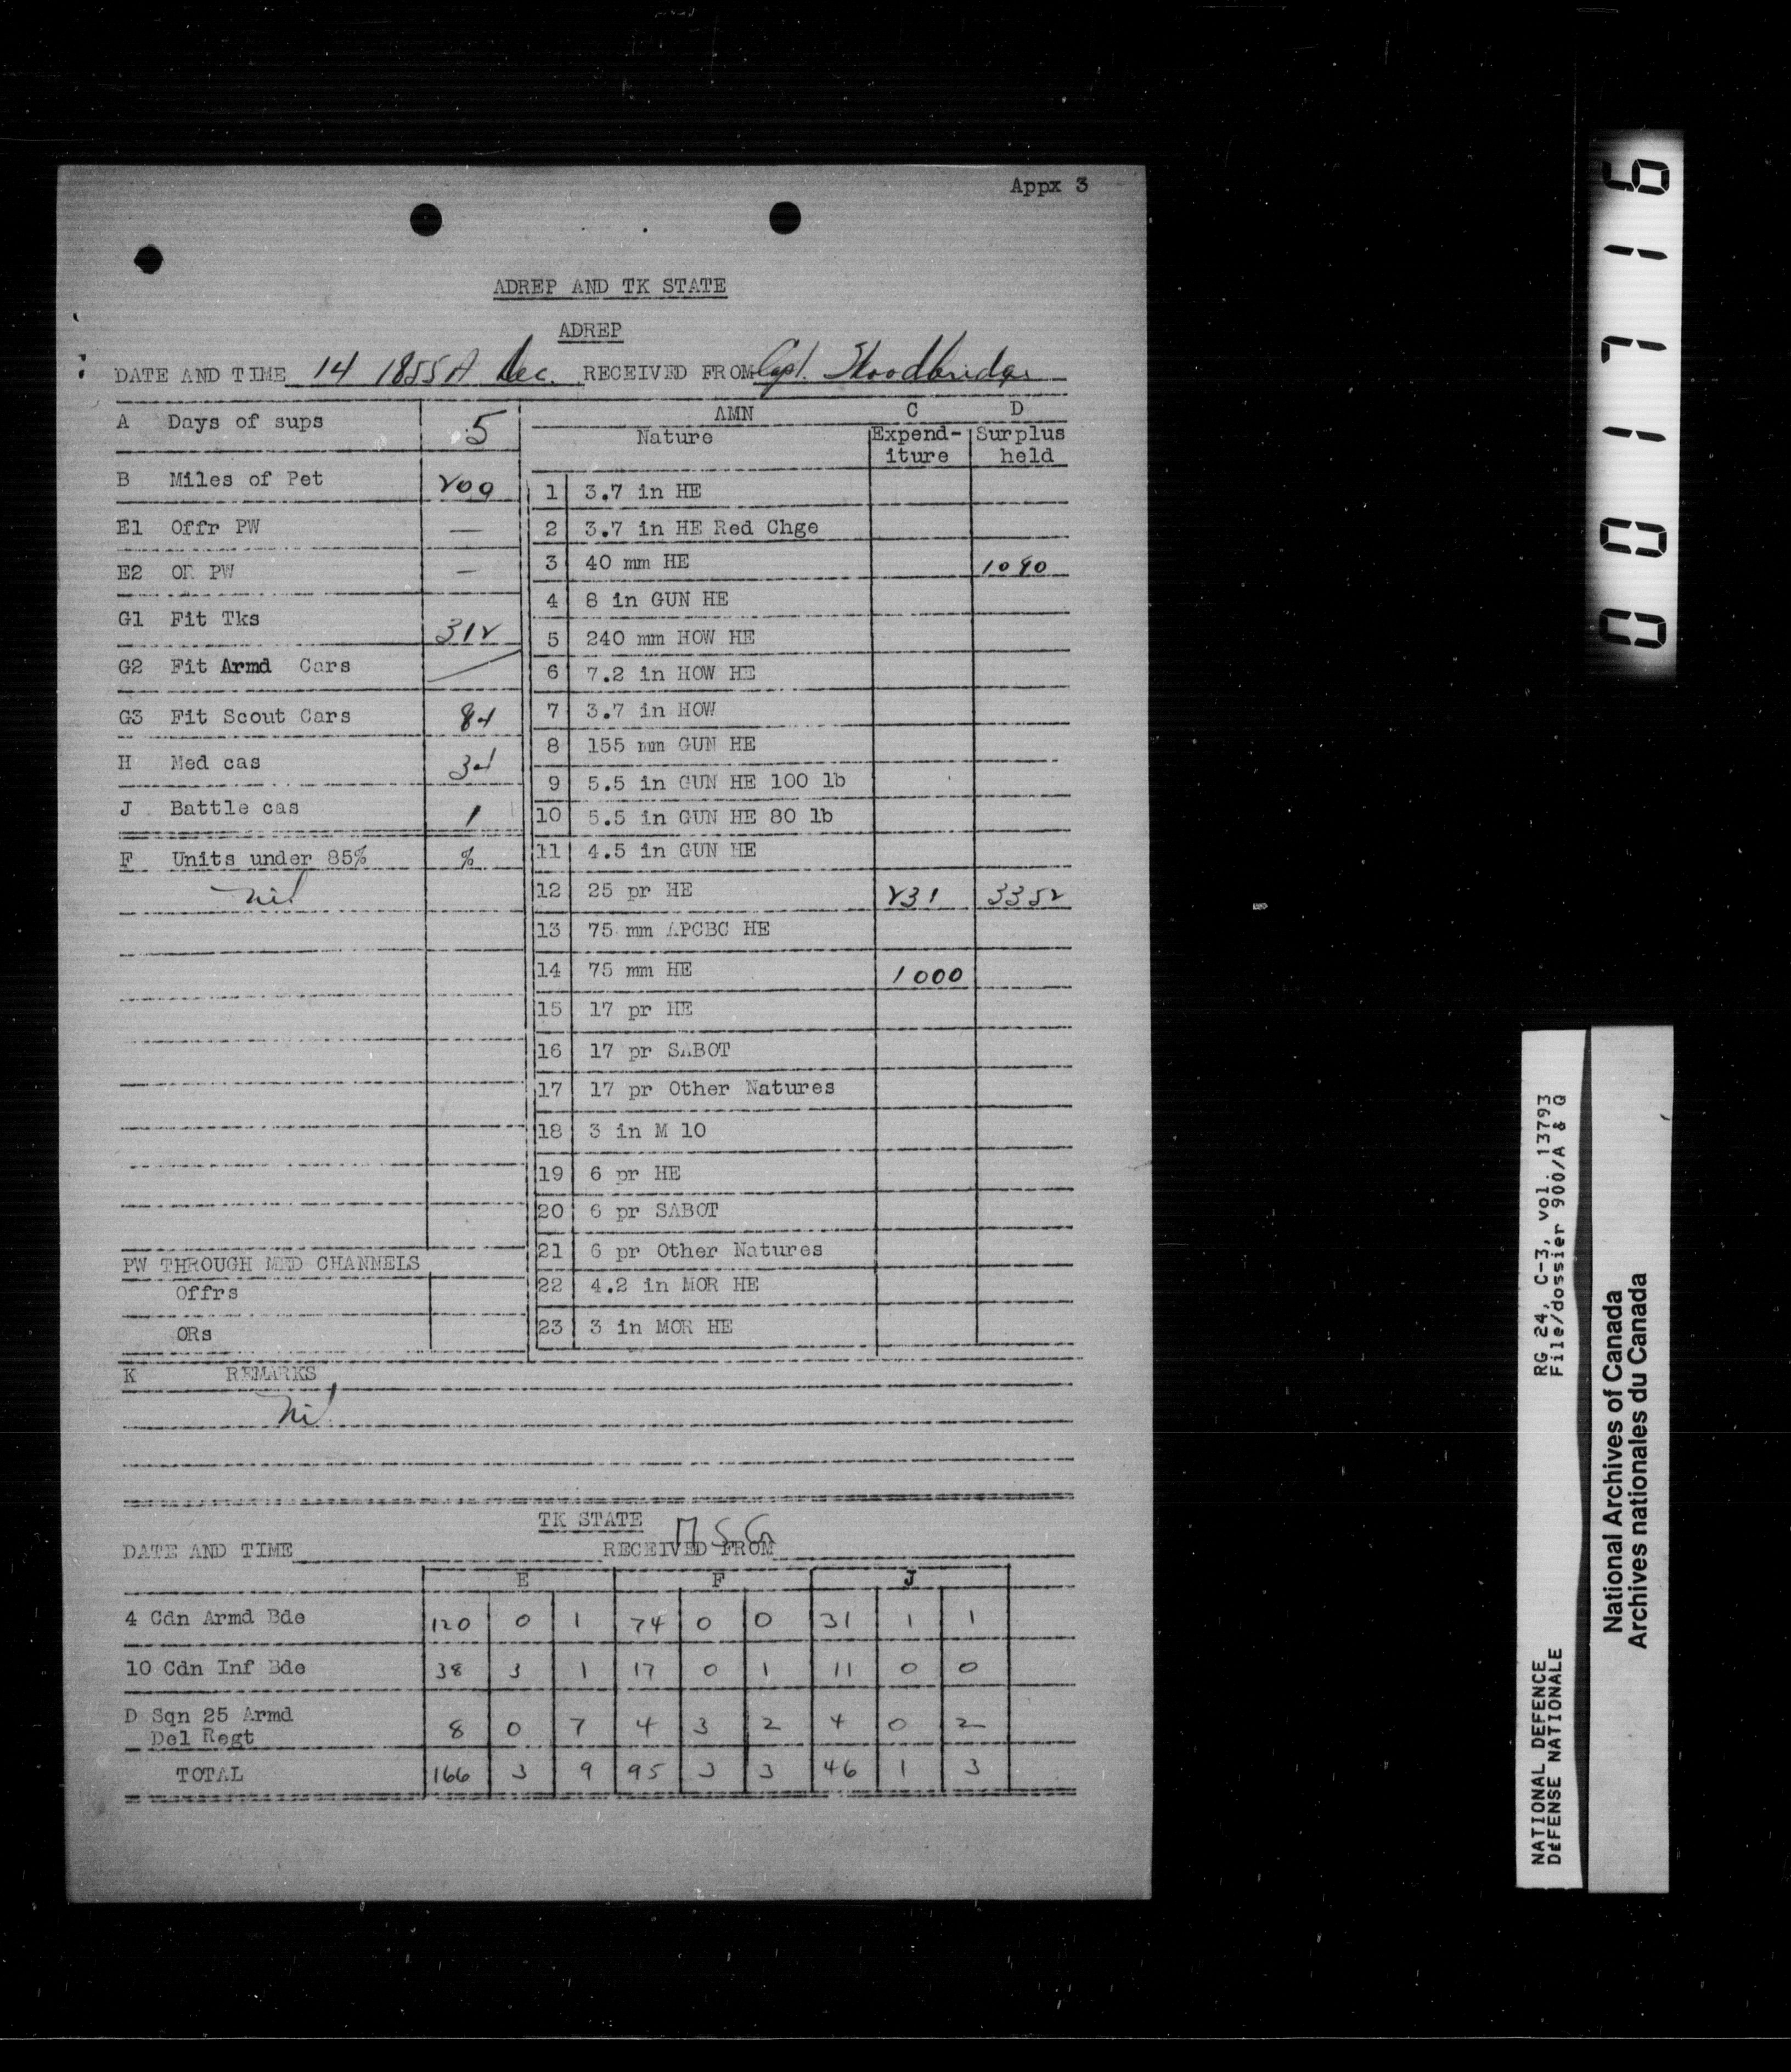 Appx 3
ADREP AND TK STATE
ADREP
DATE AND TIME 14 1855A Dec. RECEIVED FROM Capt.
A Days of sups 5
B Miles of Pet 200
E1 Offr PW —
E2 OR PW —
G1 Fit Tks 312
G2 Fit Armd Cars
G3 Fit Scout Cars 84
H Med cas 34
J Battle cas 1
F Units under 85% %
Nil
PW THROUGH MED CHANNELS
Offrs
ORs
AMN C D
Nature Expend- Surplus
iture held
1 3.7 in HE
2 3.7 in HE Red Chge
3 40 mm HE 1090
4 8 in GUN HE
5 240 mm HOW HE
6 7.2 in HOW HE
7 3.7 in HOW
8 155 mm GUN HE
9 5.5 in GUN HE 100 lb
10 5.5 in GUN HE 80 lb
11 4.5 in GUN HE
12 25 pr HE 231 3352
13 75 mm APCBC HE
14 75 mm HE 1000
15 17 pr HE
16 17 pr SABOT
17 17 pr Other Natures
18 3 in M 10
19 6 pr HE
20 6 pr SABOT
21 6 pr Other Natures
22 4.2 in MOR HE
23 3 in MOR HE
K REMARKS
Nil
TK STATE
DATE AND TIME RECEIVED FROM
E F J
4 Cdn Armd Bde 120 0 1 74 0 0 31 1 1
10 Cdn Inf Bde 38 3 1 17 0 1 11 0 0
D Sqn 25 Armd
Del Regt 8 0 7 4 3 2 4 0 2
TOTAL 166 3 9 95 3 3 46 1 3
001716
NATIONAL DEFENCE RG 24, C-3, vol. 13793
DéFENSE NATIONALE File/dossier 900/A & Q
National Archives of Canada
Archives nationales du Canada